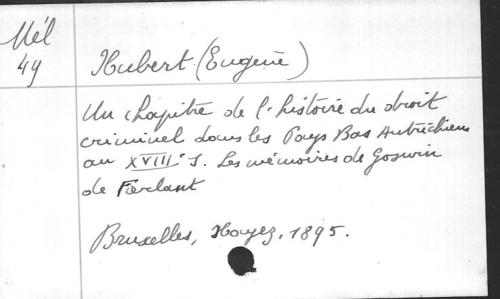 Mél
49
Hubert (Eugène)
Un chapitre de l'histoire du droit
criminel dans les Pays Bas Autrichiens
au XVIIIe s. Les mémoires de Goswin
de Fierlant
Bruxelles, Hayez. 1895.